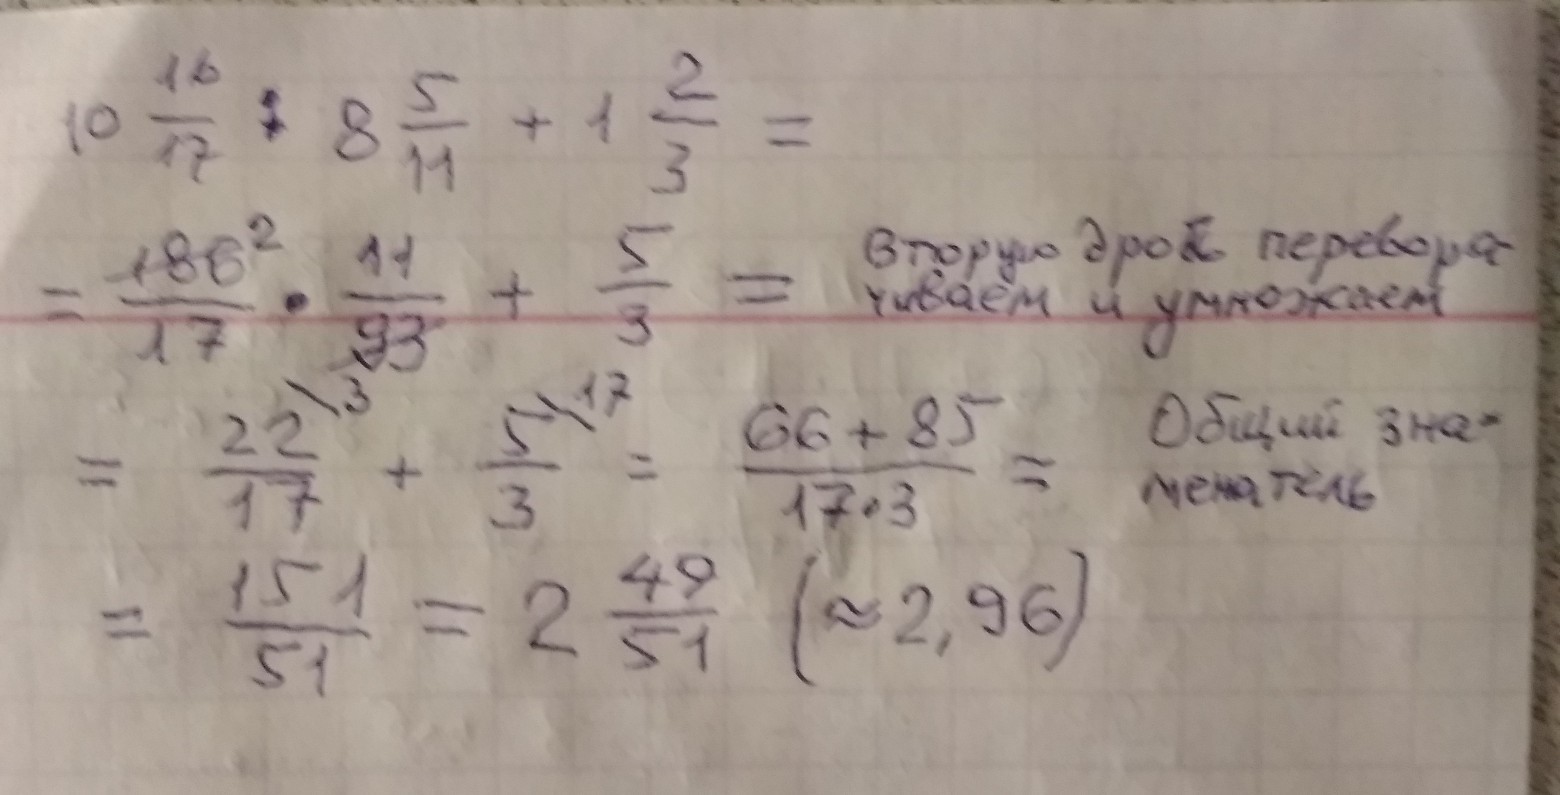 10 16/17 : 8 5/11 + 1 2/3 =
= 186²/17 • 11/93 + 5/3 = вторую дробь перевора-
чиваем и умножаем
= 22\3/17 + 5\17/3 = 66+85/17•3 = Общий зна-
менатель
= 151/51 = 2 49/51 (≈2,96)